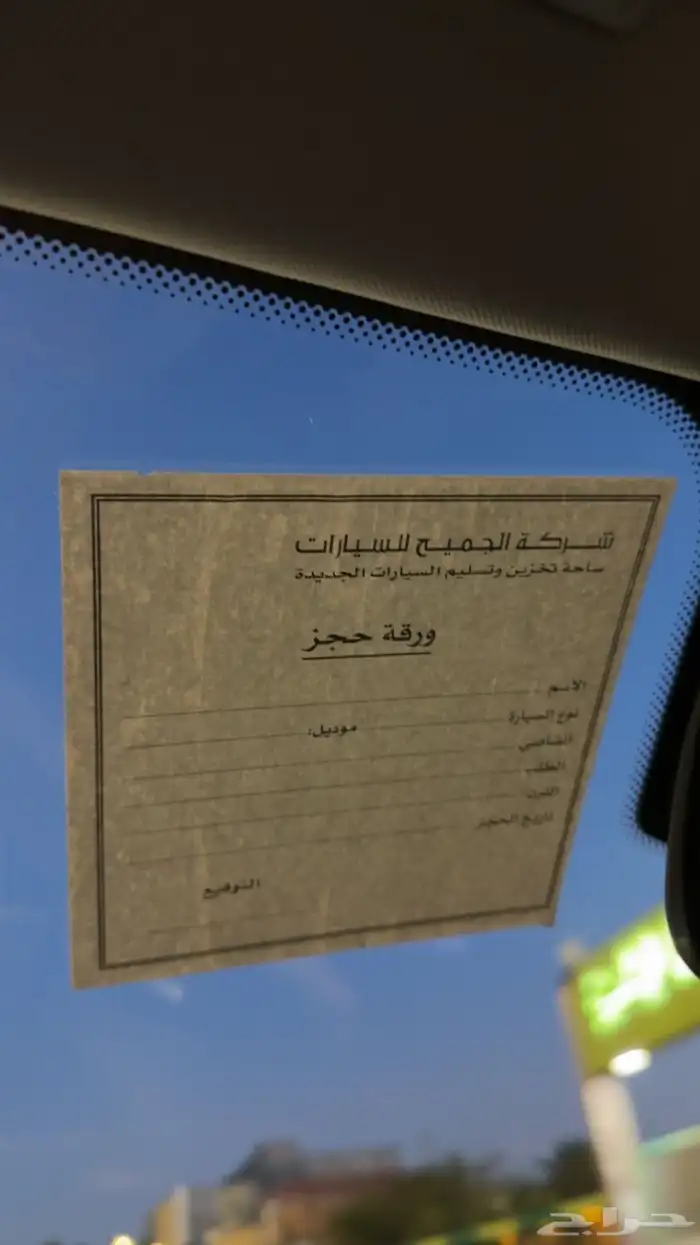 شركة الجميح للسيارات
ساحة تخزين وتسليم السيارات الجديدة
ورقة حجز
الاسم
نوع السيارة موديل:
الشاصي
الطلب
اللون
تاريخ الحجز
التوقيع
حراج